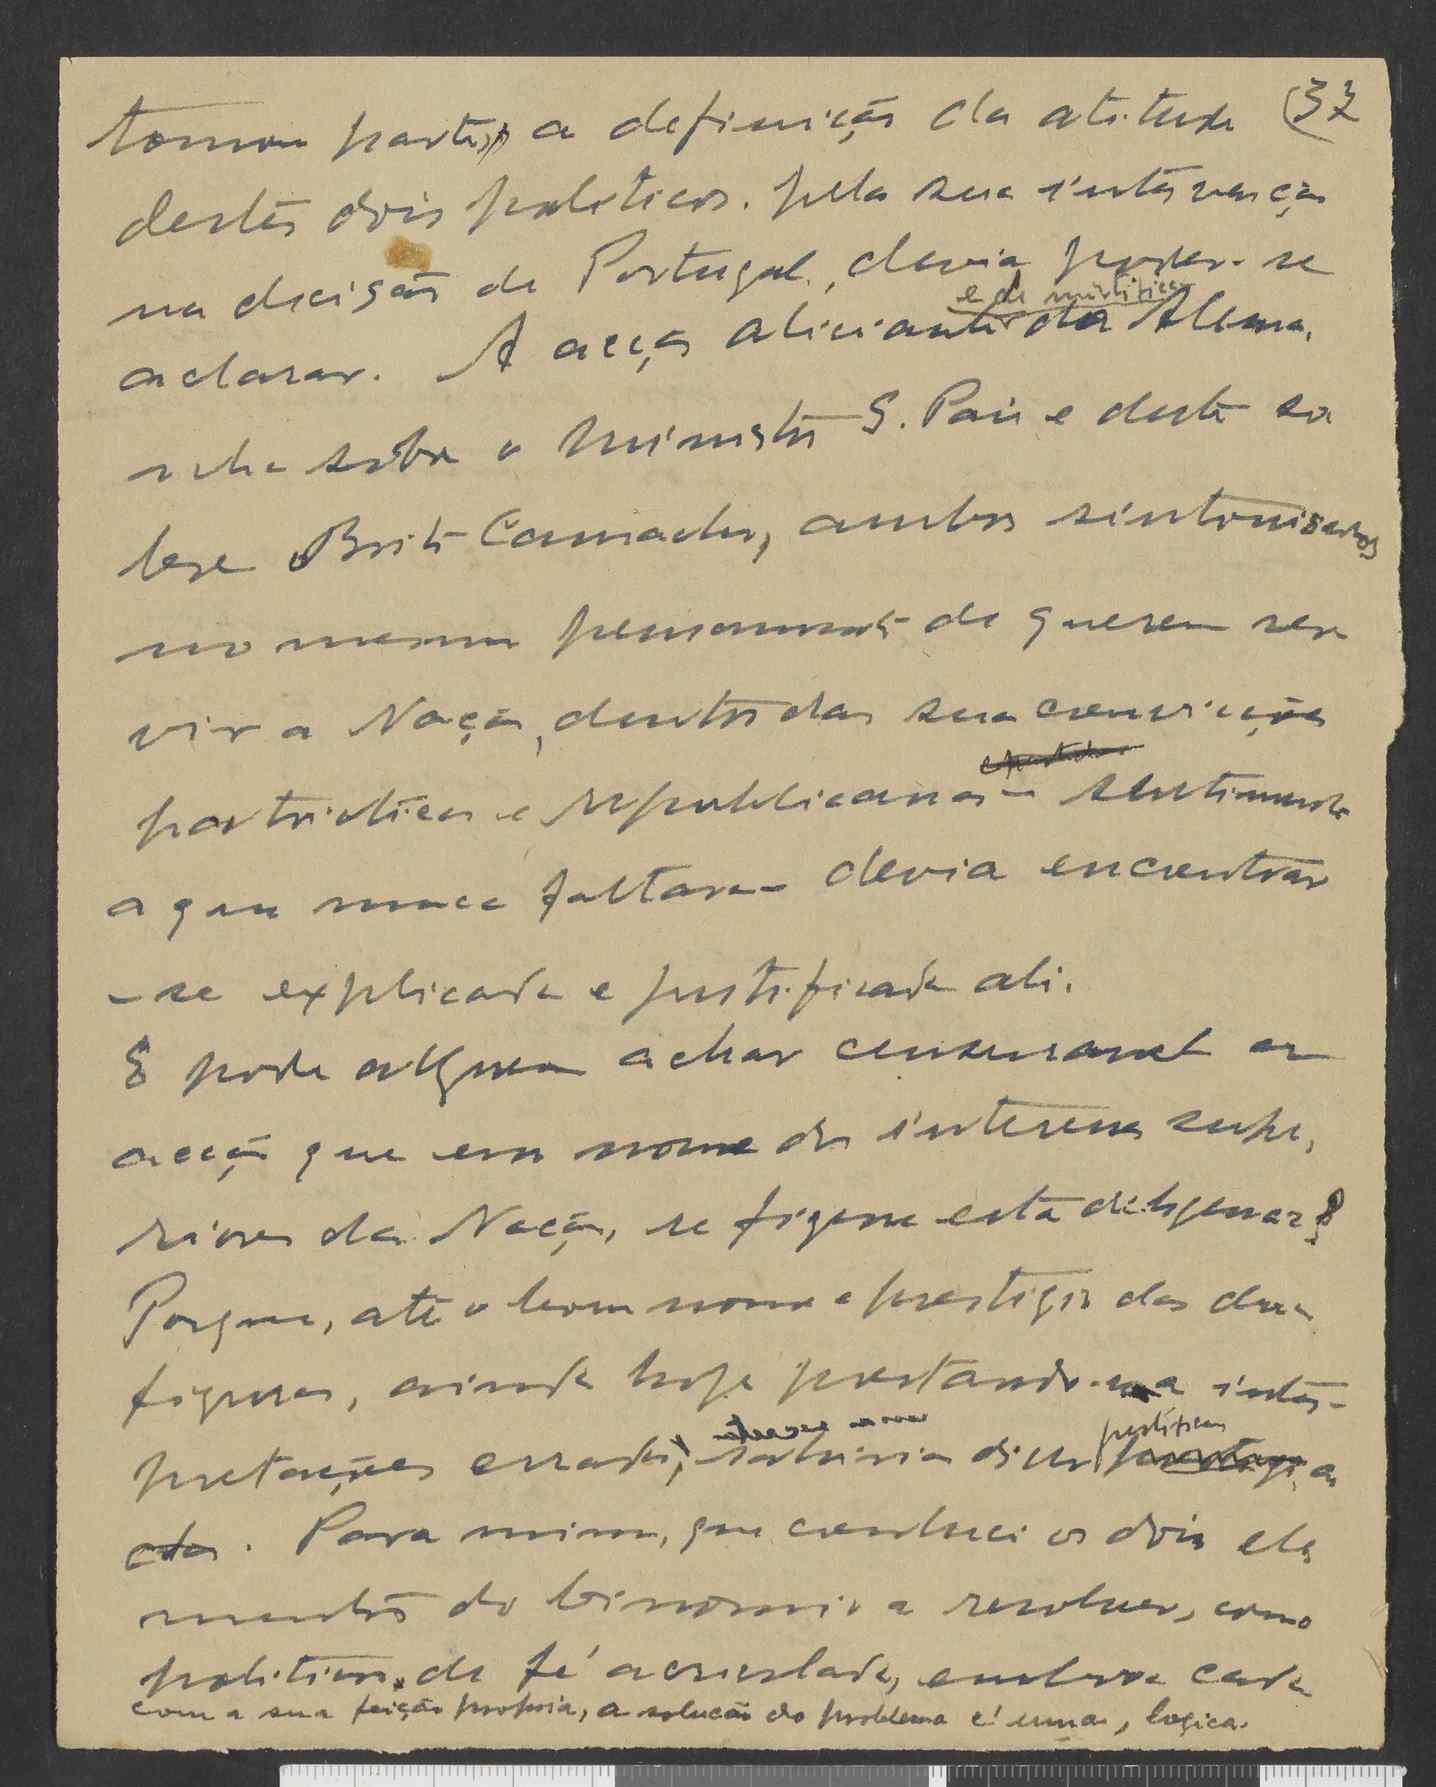 37
tomou parte, a definição da atitude
destes dois politicos. pela sua intervenção
na decisão de Portugal, devia poder-se
aclarar. A acção aliciante e de mistifica da Alema-
nha sobre o Ministro S. Pais e deste so
bre Brito Camacho, ambos sintonisados
no mesmo pensamento de querem ser
vir a Nação, dentro das sua convicções
patrioticas e republicanas - sentimento
a que nunca faltaram - devia encontrar
-se explicada e justificada ali.
E pode alguem achar censuravel a
acção que em nome dos interesses supe-
riores da Nação, se fizesse esta diligencia?
Porque, até o bom nome e prestigio das duas
figuras, ainda hoje prestando-se a inter-
pretações erradas, sahiria justifica
da. Para mim, que conheci os dois ele
mentos do binomio a resolver, como
politicos de fé acrisolada, embora cada
com a sua feição propria, a solução do problema é uma, logica.